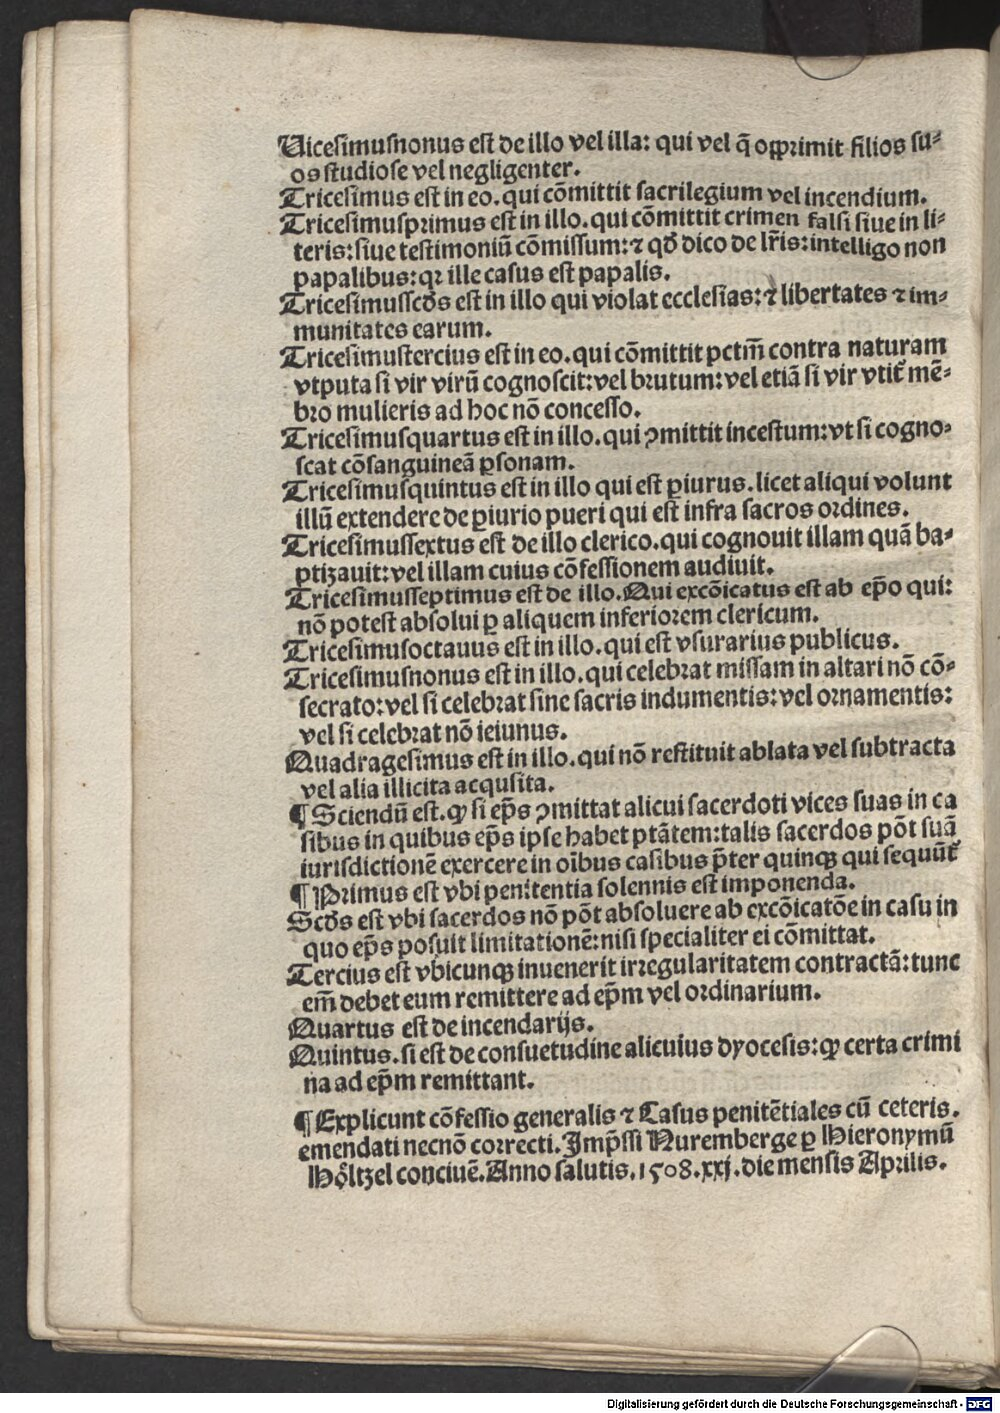 Uicesimusnonus est de illo vel illa: qui vel q̄ opprimit filios su⸗
os studiose vel negligenter.
Tricesimus est in eo. qui cōmittit sacrilegium vel incendium.
Tricesimusprimus est in illo. qui cōmittit crimen falsi siue in li⸗
teris: siue testimoniū cōmissum: ⁊ qđ dico de lr̄is: intelligo non
papalibus: qꝛ ille casus est papalis.
Tricesimusscđs est in illo qui violat ecclesias: ⁊ libertates ⁊ im⸗
munitates earum.
Tricesimustercius est in eo. qui cōmittit pctm̄ contra naturam
vtputa si vir virū cognoscit: vel brutum: vel etiā si vir vtit᷑ mē⸗
bro mulieris ad hoc nō concesso.
Tricesimusquartus est in illo. qui ꝯmittit incestum: vt si cogno⸗
scat cōsanguineā ꝑsonam.
Tricesimusquintus est in illo qui est ꝑiurus. licet aliqui volunt
illū extendere de ꝑiurio pueri qui est infra sacros ordines.
Tricesimussextus est de illo clerico. qui cognouit illam quā ba⸗
ptizauit: vel illam cuius cōfessionem audiuit.
Tricesimusseptimus est de illo. Qui excōicatus est ab ep̄o qui:
nō potest absolui ꝑ aliquem inferiorem clericum.
Tricesimusoctauus est in illo. qui est vsurarius publicus.
Tricesimusnonus est in illo. qui celebrat missam in altari nō cō⸗
secrato: vel si celebrat sine sacris indumentis: vel ornamentis:
vel si celebrat nō ieiunus.
Quadragesimus est in illo. qui nō restituit ablata vel subtracta
vel alia illicita acqusita.
¶ Sciendū est. ꝙ si ep̄s ꝯmittat alicui sacerdoti vices suas in ca
sibus in quibus ep̄s ipse habet ptātem: talis sacerdos pōt suā
iurisdictionē exercere in oībus casibus p̄ter quinqꝫ qui sequūt᷑
¶ Primus est vbi penitentia solennis est imponenda.
Scđs est vbi sacerdos nō pōt absoluere ab excōicatōe in casu in
quo ep̄s posuit limitationē: nisi specialiter ei cōmittat.
Tercius est vbicunqꝫ inuenerit irregularitatem contractā: tunc
em̄ debet eum remittere ad ep̄m vel ordinarium.
Quartus est de incendarijs.
Quintus. si est de consuetudine alicuius dyocesis: ꝙ certa crimi
na ad ep̄m remittant.
¶ Explicunt cōfessio generalis ⁊ Casus penitētiales cū ceteris.
emendati necnō correcti. Jmp̄ssi Nuremberge ꝑ Hieronymū
Höltzel conciuē. Anno salutis. 1508. xxj. die mensis Aprilis.
Digitalisierung gefördert durch die Deutsche Forschungsgemeinschaft - DFG